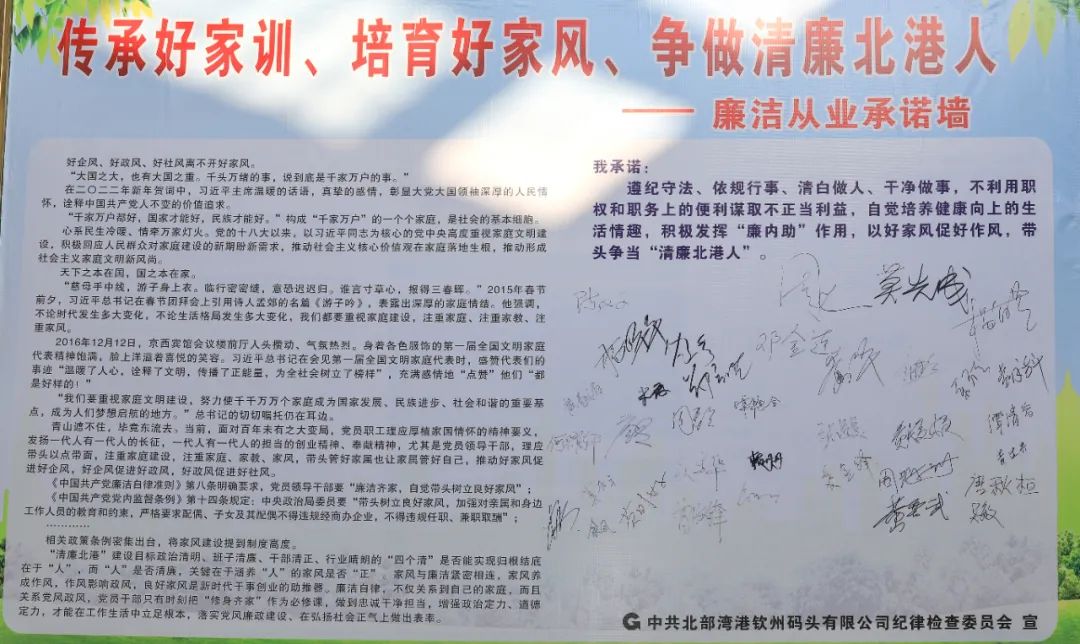 传承好家训、培育好家风、争做清廉北港人
—— 廉洁从业承诺墙
好企风、好政风、好社风离不开好家风。
“大国之大，也有大国之重。千头万绪的事，说到底是千家万户的事。”
在二〇二二年新年贺词中，习近平主席温暖的话语，真挚的感情，彰显大党大国领袖深厚的人民情
怀，诠释中国共产党人不变的价值追求。
“千家万户都好，国家才能好，民族才能好。”构成“千家万户”的一个个家庭，是社会的基本细胞。
心系民生冷暖、情牵万家灯火。党的十八大以来，以习近平同志为核心的党中央高度重视家庭文明建
设，积极回应人民群众对家庭建设的新期盼新需求，推动社会主义核心价值观在家庭落地生根，推动形成
社会主义家庭文明新风尚。
天下之本在国，国之本在家。
“慈母手中线，游子身上衣。临行密密缝，意恐迟迟归。谁言寸草心，报得三春晖。”2015年春节
前夕，习近平总书记在春节团拜会上引用诗人孟郊的名篇《游子吟》，表露出深厚的家庭情结。他强调，
不论时代发生多大变化，不论生活格局发生多大变化，我们都要重视家庭建设，注重家庭、注重家教、注
重家风。
2016年12月12日，京西宾馆会议楼前厅人头攒动、气氛热烈。身着各色服饰的第一届全国文明家庭
代表精神饱满，脸上洋溢着喜悦的笑容。习近平总书记在会见第一届全国文明家庭代表时，盛赞代表们的
事迹“温暖了人心，诠释了文明，传播了正能量，为全社会树立了榜样”，充满感情地“点赞”他们“都
是好样的！”
“我们要重视家庭文明建设，努力使千千万万个家庭成为国家发展、民族进步、社会和谐的重要基
点，成为人们梦想启航的地方。”总书记的切切嘱托仍在耳边。
青山遮不住，毕竟东流去。当前，面对百年未有之大变局，党员职工理应厚植家国情怀的精神要义，
发扬一代人有一代人的长征，一代人有一代人的担当的创业精神、奉献精神，尤其是党员领导干部，理应
带头以点带面，注重家庭建设，注重家庭、家教、家风，带头管好家属也让家属管好自己，推动好家风促
进好企风，好企风促进好政风，好政风促进好社风。
《中国共产党廉洁自律准则》第八条明确要求，党员领导干部要“廉洁齐家，自觉带头树立良好家风”；
《中国共产党党内监督条例》第十四条规定；中央政治局委员要“带头树立良好家风，加强对亲属和身边
工作人员的教育和约束，严格要求配偶、子女及其配偶不得违规经商办企业，不得违规任职、兼职取酬”；
…………
相关政策条例密集出台，将家风建设提到制度高度。
“清廉北港”建设目标政治清明、班子清廉、干部清正、行业晴朗的“四个清”是否能实现归根结底
在于“人”，而“人”是否清廉，关键在于涵养“人”的家风是否“正”。家风与廉洁紧密相连，家风养
成作风，作风影响政风，良好家风是新时代干事创业的助推器。廉洁自律，不仅关系到自己的家庭，而且
关系党风政风，党员干部只有时刻把“修身齐家”作为必修课，做到忠诚干净担当，增强政治定力、道德
定力，才能在工作生活中立足根本，落实党风廉政建设、在弘扬社会正气上做出表率。
我承诺：
遵纪守法、依规行事、清白做人、干净做事，不利用职
权和职务上的便利谋取不正当利益，自觉培养健康向上的生
活情趣，积极发挥“廉内助”作用，以好家风促好作风，带
头争当“清廉北港人”。
莫先成
邓金莲
唐秋桓
中共北部湾港钦州码头有限公司纪律检查委员会 宣